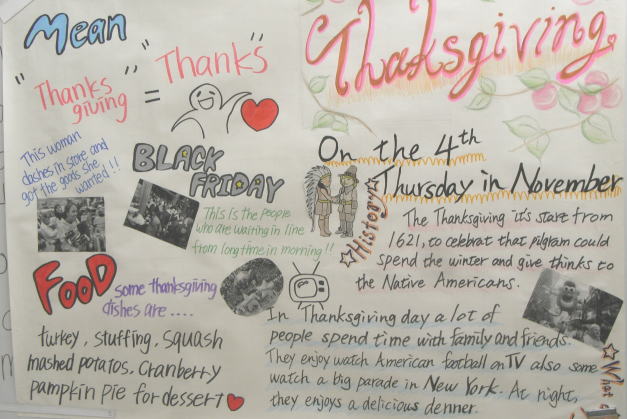 Mean
"Thanks giving" = "Thanks"
This woman
daches in store and
got the goods she
wanted!!
BLACK
FRIDAY
This is the people
who are waiting in line
from long time in morning!!
FOOD
some thanksgiving
dishes are....
turkey, stuffing, squash
mashed potatos, cranberry
pampkin pie for dessert
Thaksgiving
On the 4th
Thursday in November
☆History☆
The Thanksgiving it's start from
1621, to celebrat that pilgram could
spend the winter and give thinks to
the Native Americans.
In Thanksgiving day a lot of
people spend time with family and friends.
They enjoy watch American football on TV also some
watch a big parade in New York. At night,
they enjoys a delicious denner.
☆What